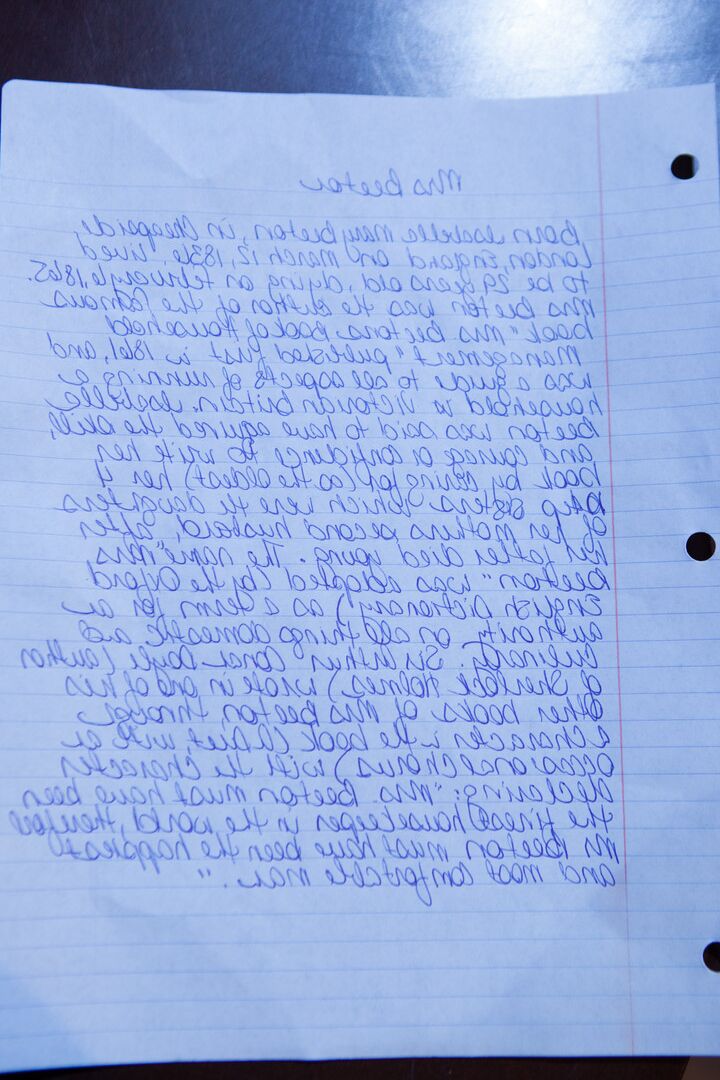 Mrs beeton
born Isabelle mary beeton, in Cheapside,
London, England on march 12, 1836, lived
to be 29 years old, dying on february 6, 1865.
Mrs beeton was the author of the famous
book "Mrs beetons book of Household
Management" published first in 1861, and
was a guide to all aspects of running a
household in victorian britain. Isabelle
beeton was said to have aquired the skill,
and courage or confidence to write her
book by caring for (as the oldest) her 4
step sisters which were the daughters
of her mothers second husband, after
her father died young. The name "Mrs
beeton" was adapted (by the Oxford
English Dictionary) as a term for an
authority on all things domestic and
culinary. Sir Arthur Conan Doyle (author
of Sherlock Holmes) wrote in one of his
other books of Mrs beeton through
a character in the book (A Duet, with an
occasional chorus) with the character
declaring: "Mrs. Beeton must have been
the finest housekeeper in the world, therefore
Mr Beeton must have been the happiest
and most comfortable man."